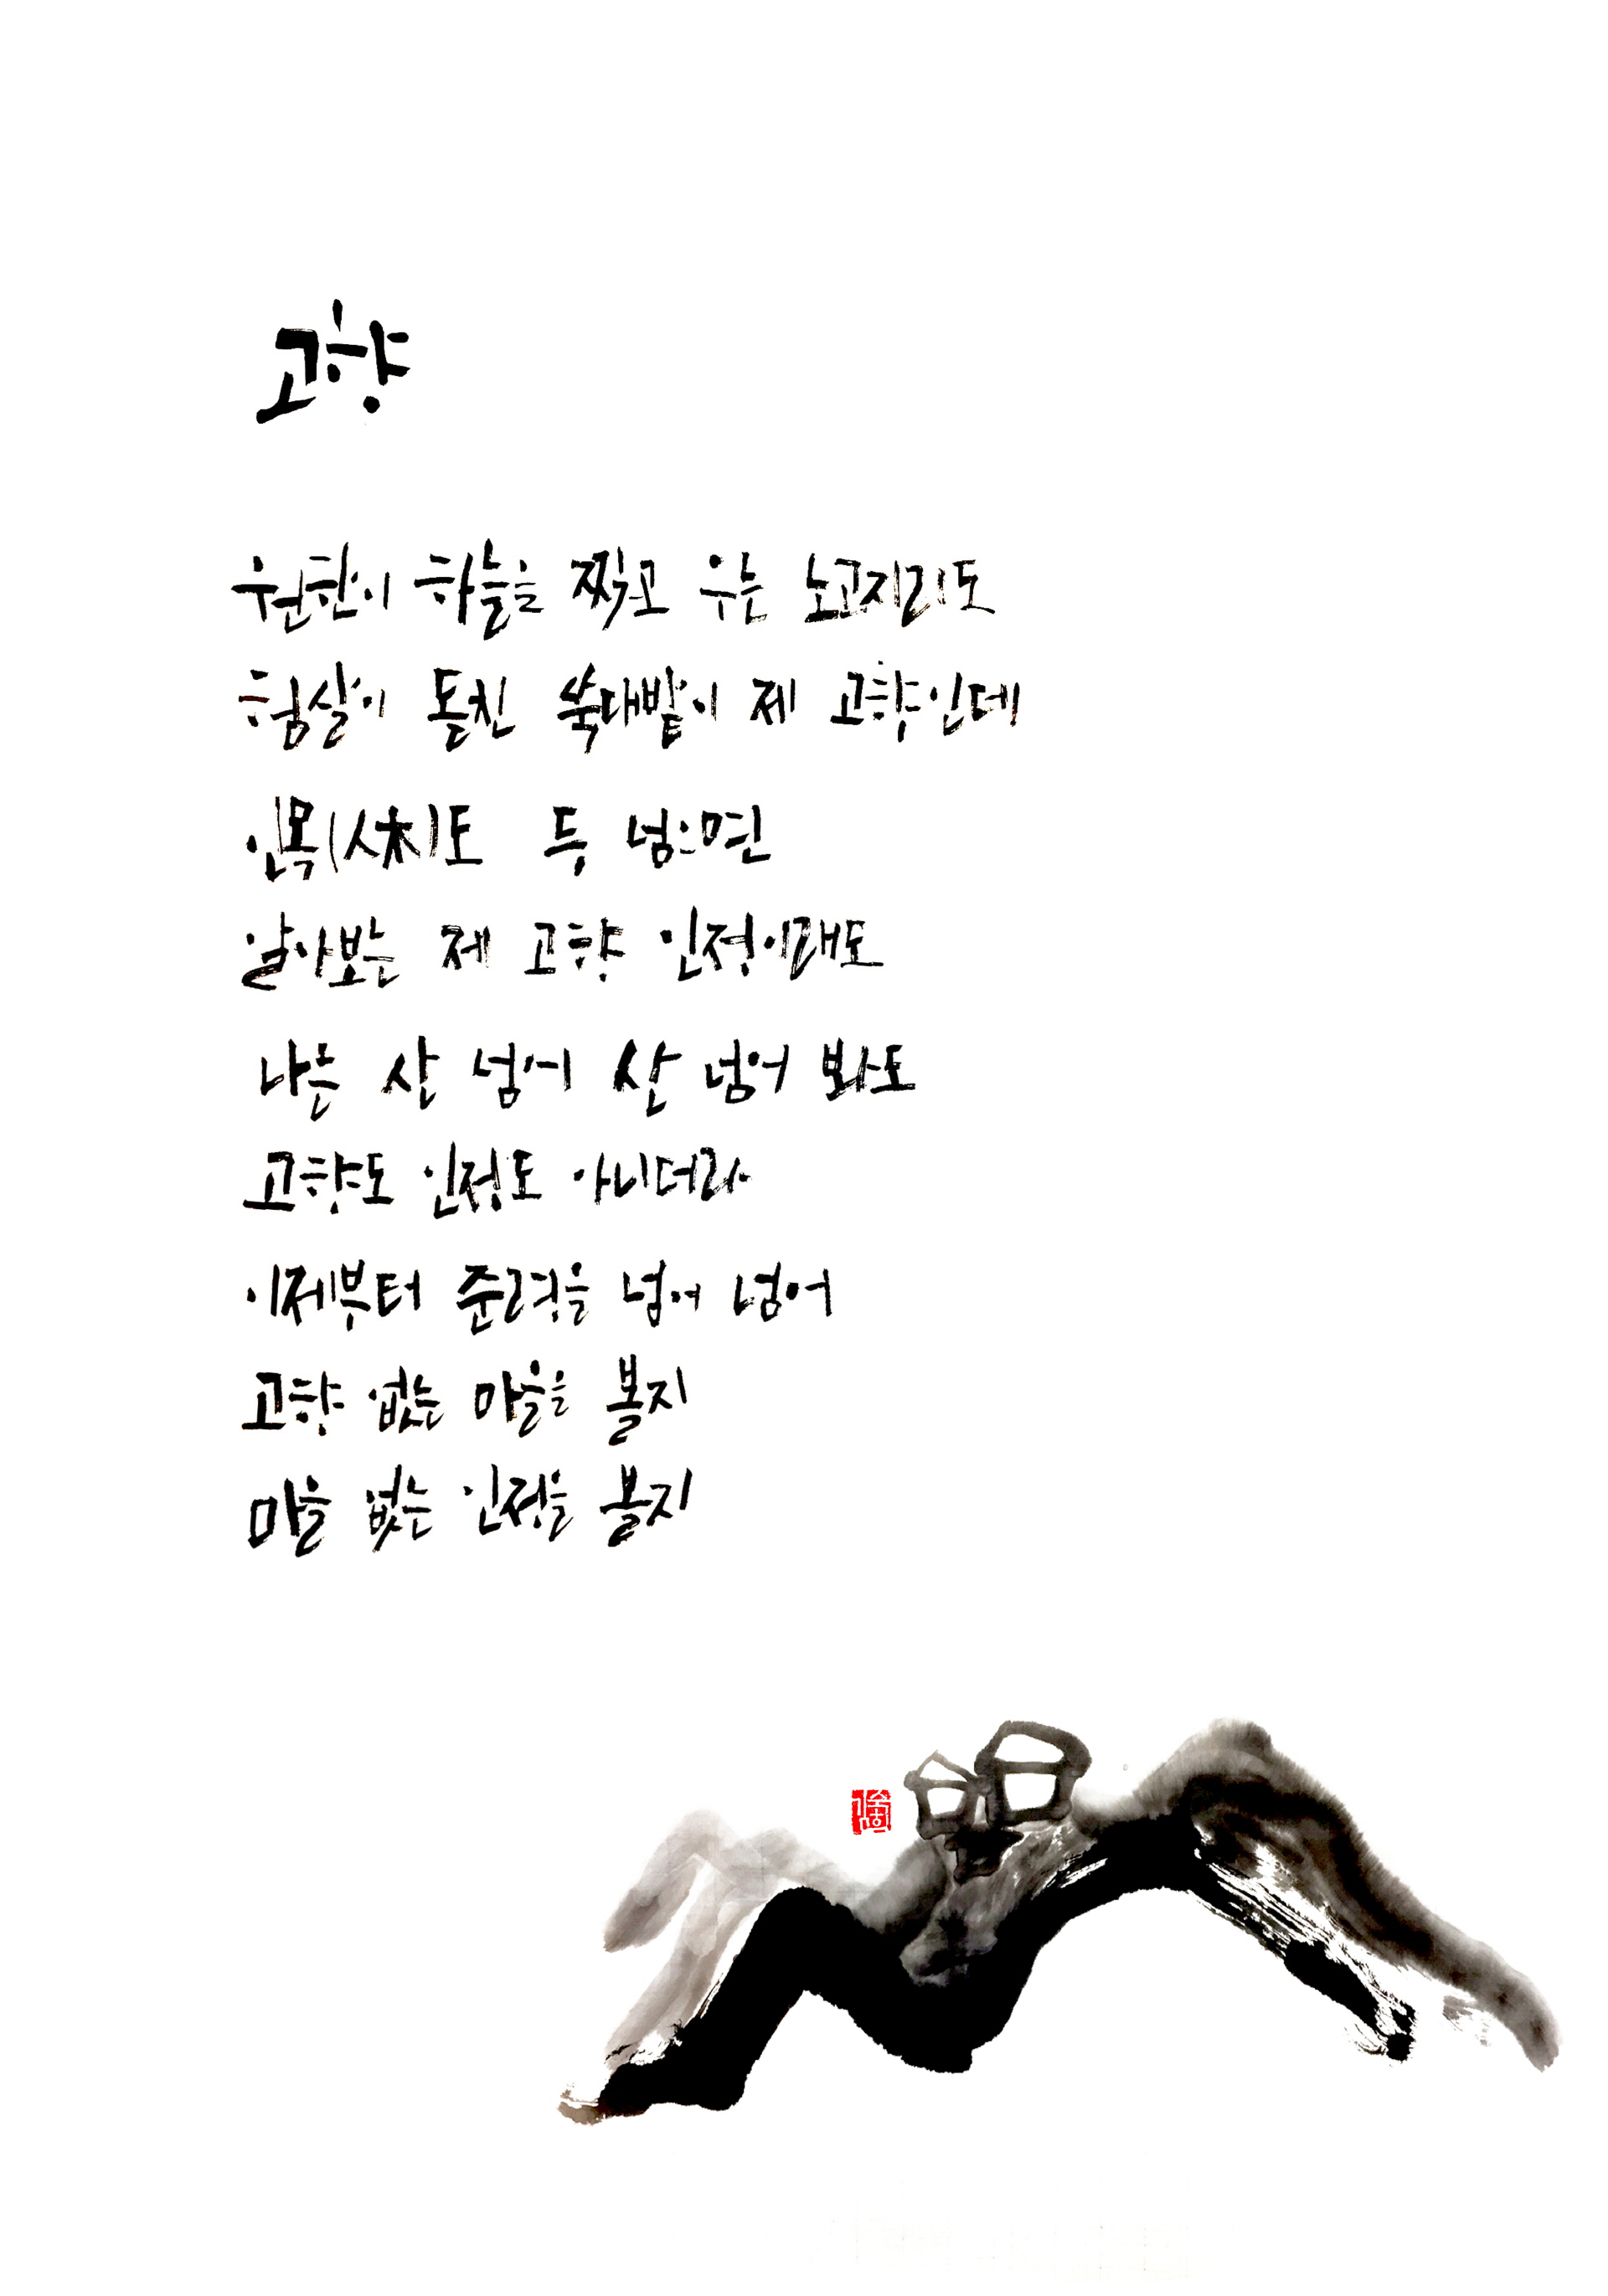 고향
원한이 하늘을 찍고 우는 노고지리도
험살이 돋친 쑥대밭이 제 고향인데
인목(人木)도 등 넘으면
알아보는 제 고향 인정이래도
나는 산 넘어 산 넘어 봐도
고향도 인정도 아니더라
이제부터 준령을 넘어 넘어
고향 없는 마을을 볼지
마을 없는 인정을 볼지